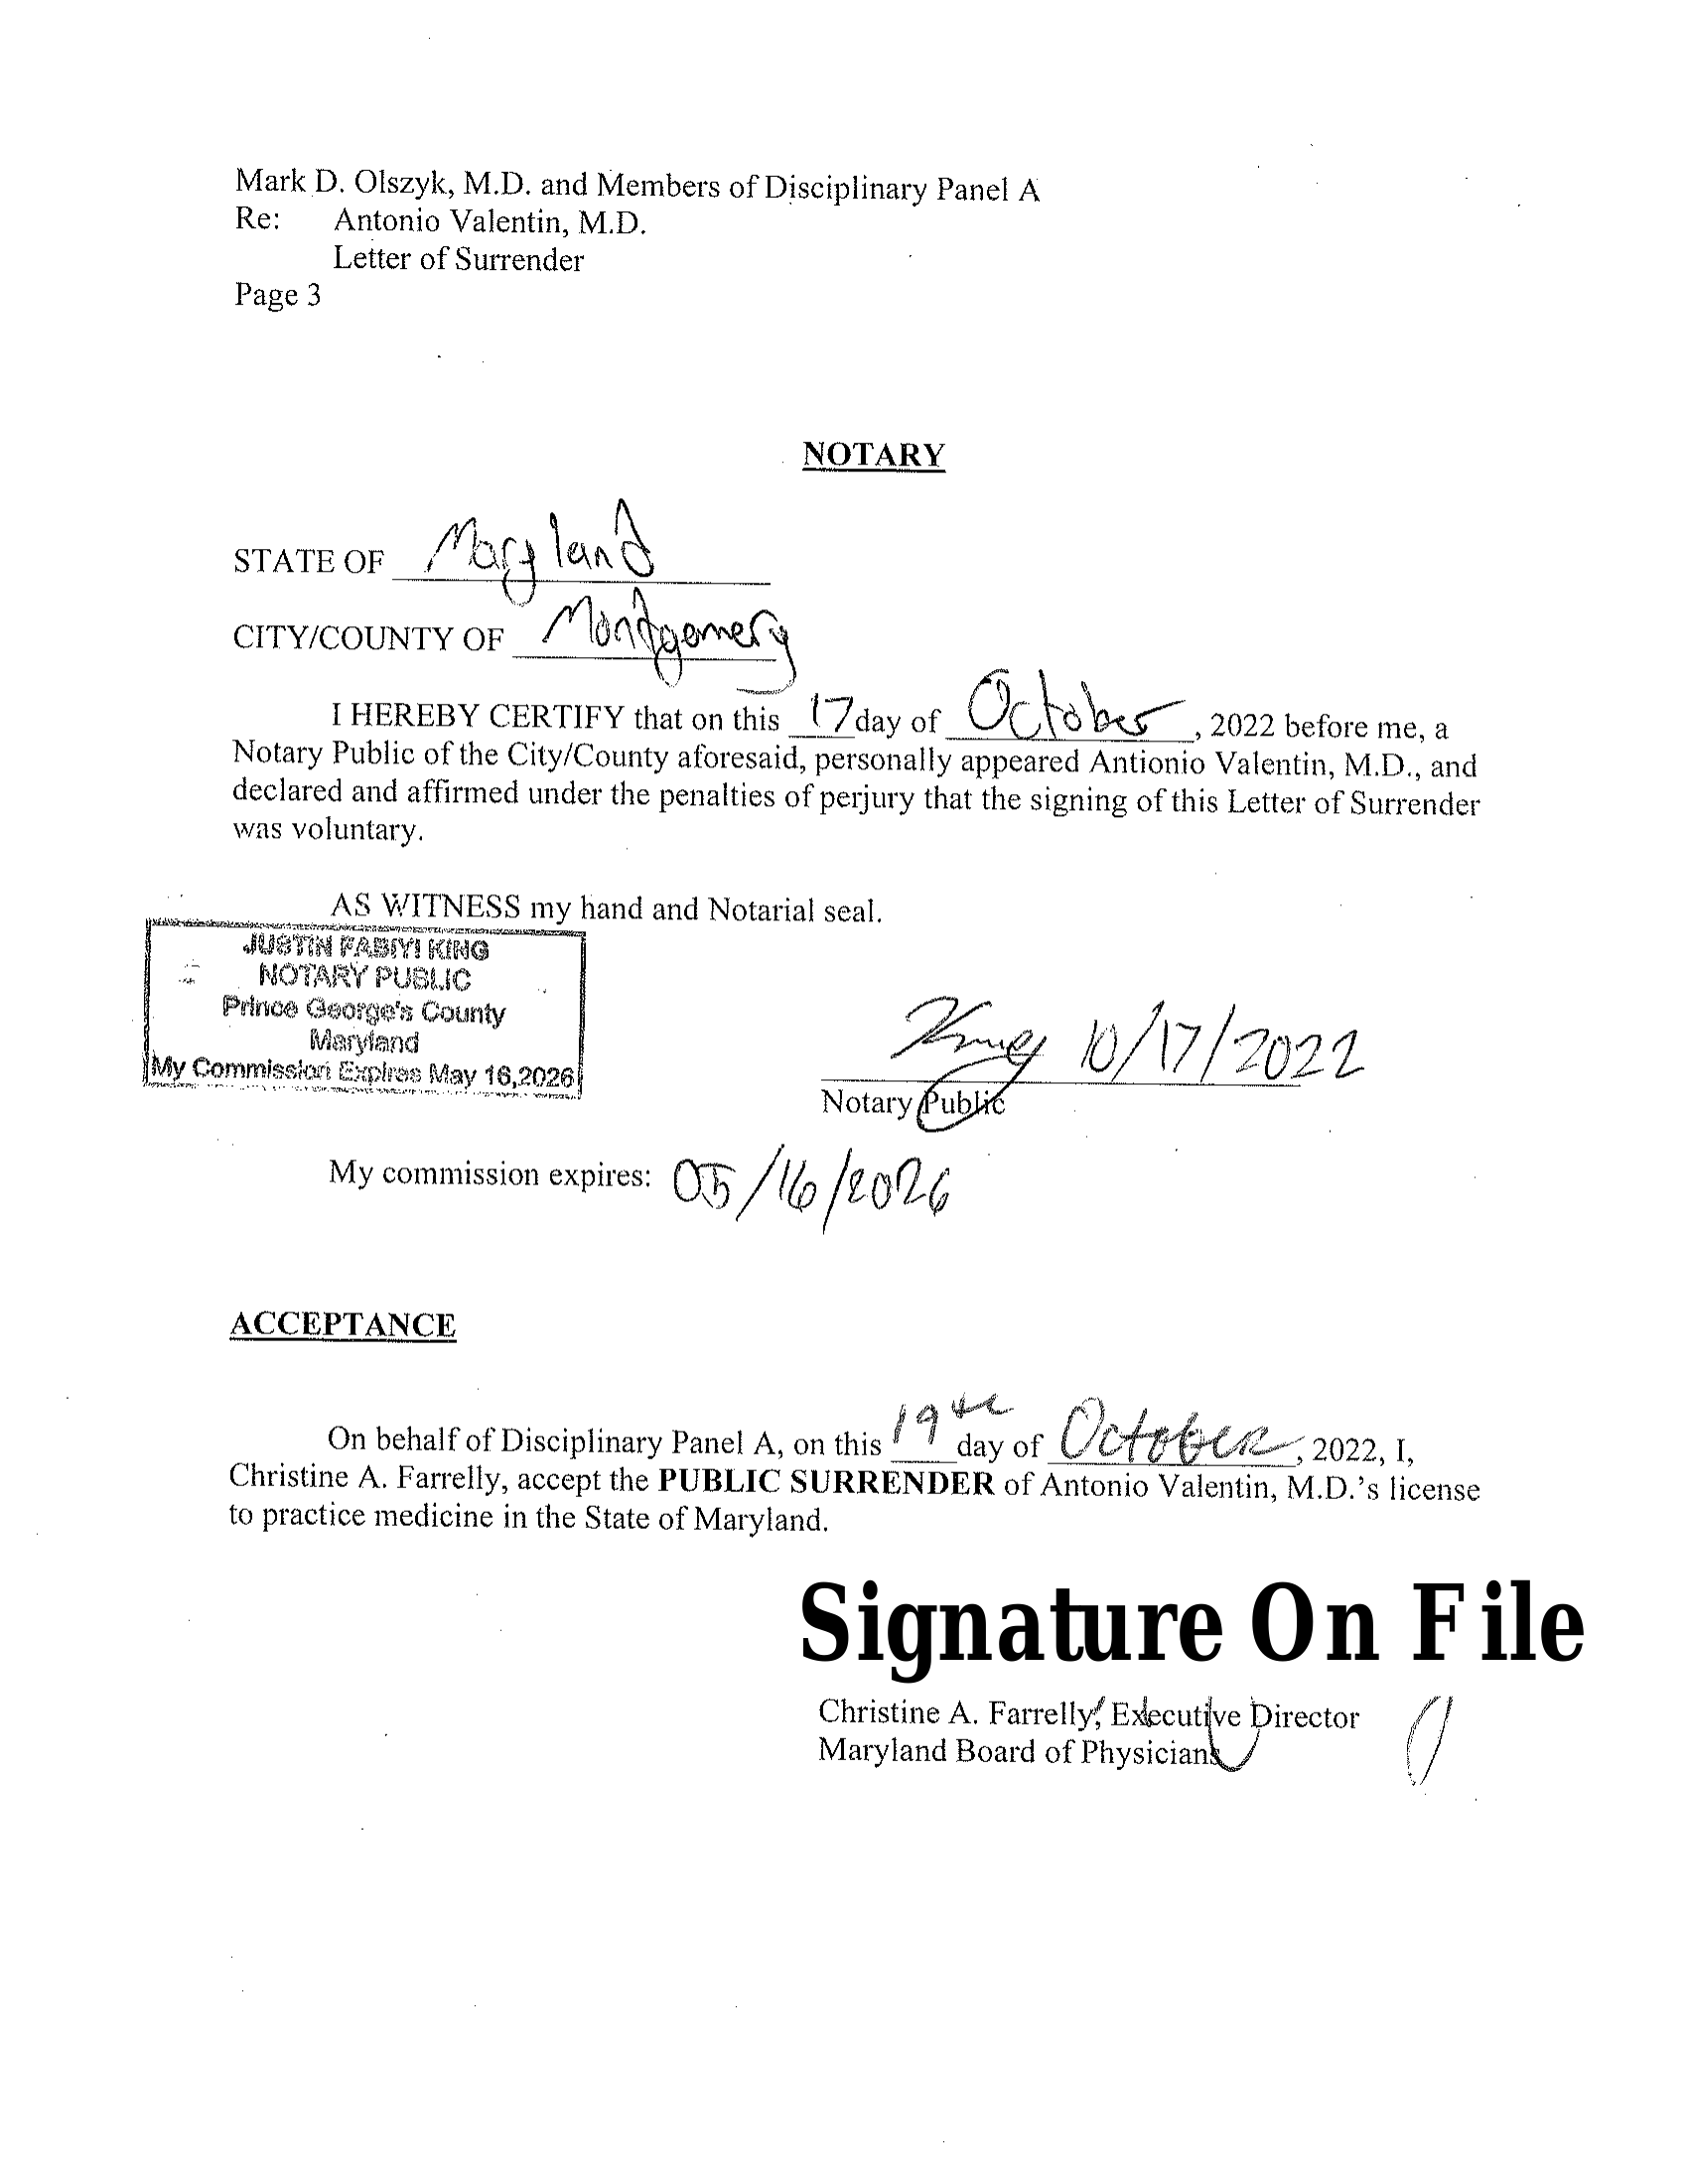 Mark D. Olszyk, M.D. and Members of Disciplinary Panel A
Re: Antonio Valentin, M.D.
Letter of Surrender
Page 3
NOTARY
STATE OF Maryland
CITY/COUNTY OF Montgomery
I HEREBY CERTIFY that on this 17 day of October, 2022 before me, a
Notary Public of the City/County aforesaid, personally appeared Antionio Valentin, M.D., and
declared and affirmed under the penalties of perjury that the signing of this Letter of Surrender
was voluntary.
AS WITNESS my hand and Notarial seal.
JUSTIN FABIYI KING
NOTARY PUBLIC
Prince George's County
Maryland
My Commission Expires May 16,2026
King 10/17/2022
Notary Public
My commission expires: 05/16/2026
ACCEPTANCE
On behalf of Disciplinary Panel A, on this 19th day of October, 2022, I,
Christine A. Farrelly, accept the PUBLIC SURRENDER of Antonio Valentin, M.D.'s license
to practice medicine in the State of Maryland.
Signature On File
Christine A. Farrelly, Executive Director
Maryland Board of Physicians